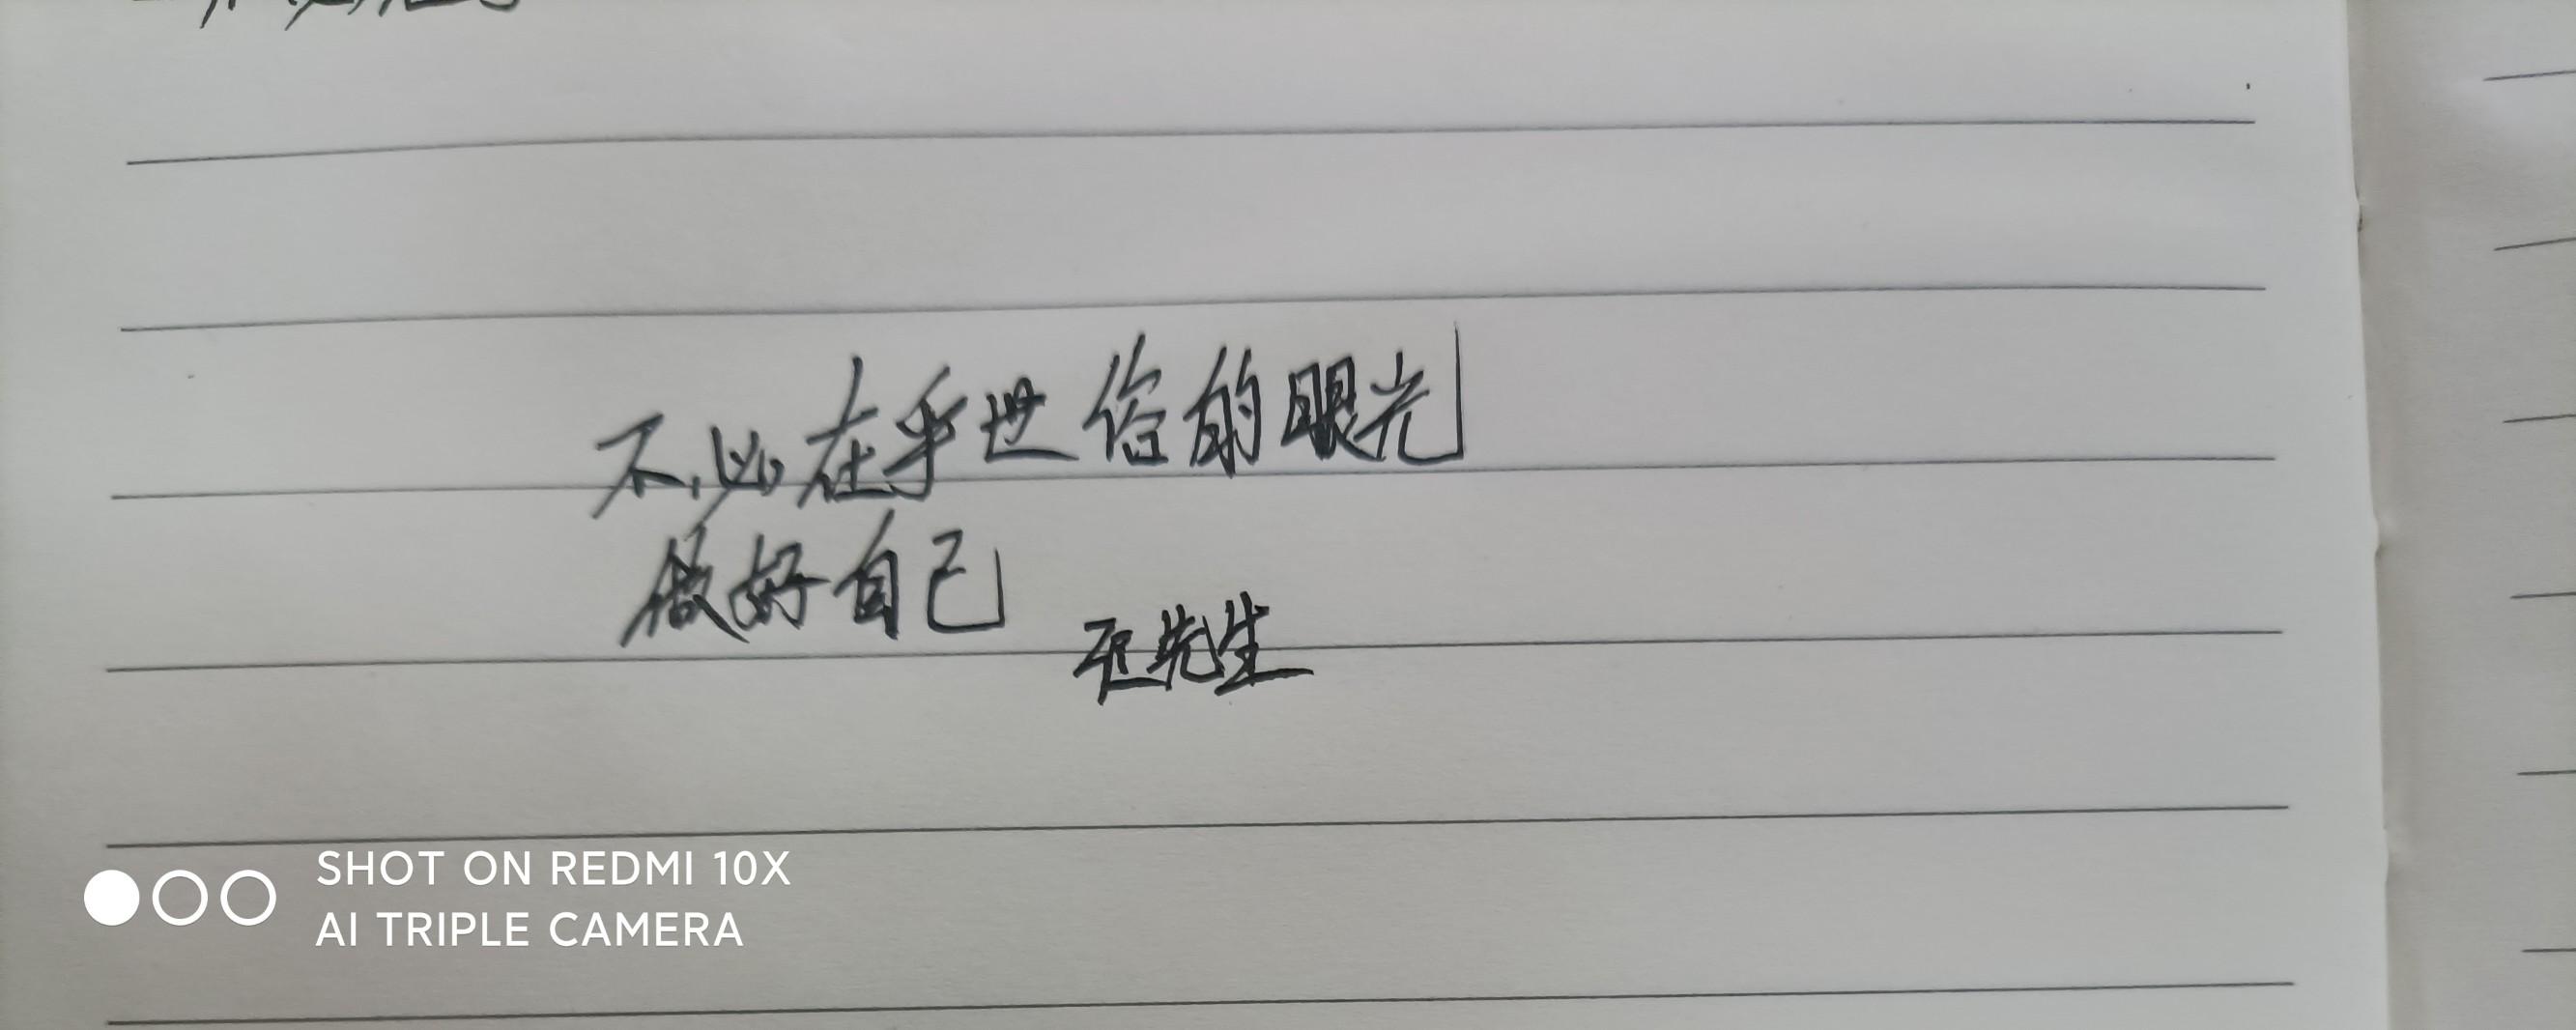 不必在乎世俗的眼光
做好自己
先生
SHOT ON REDMI 10X
AI TRIPLE CAMERA